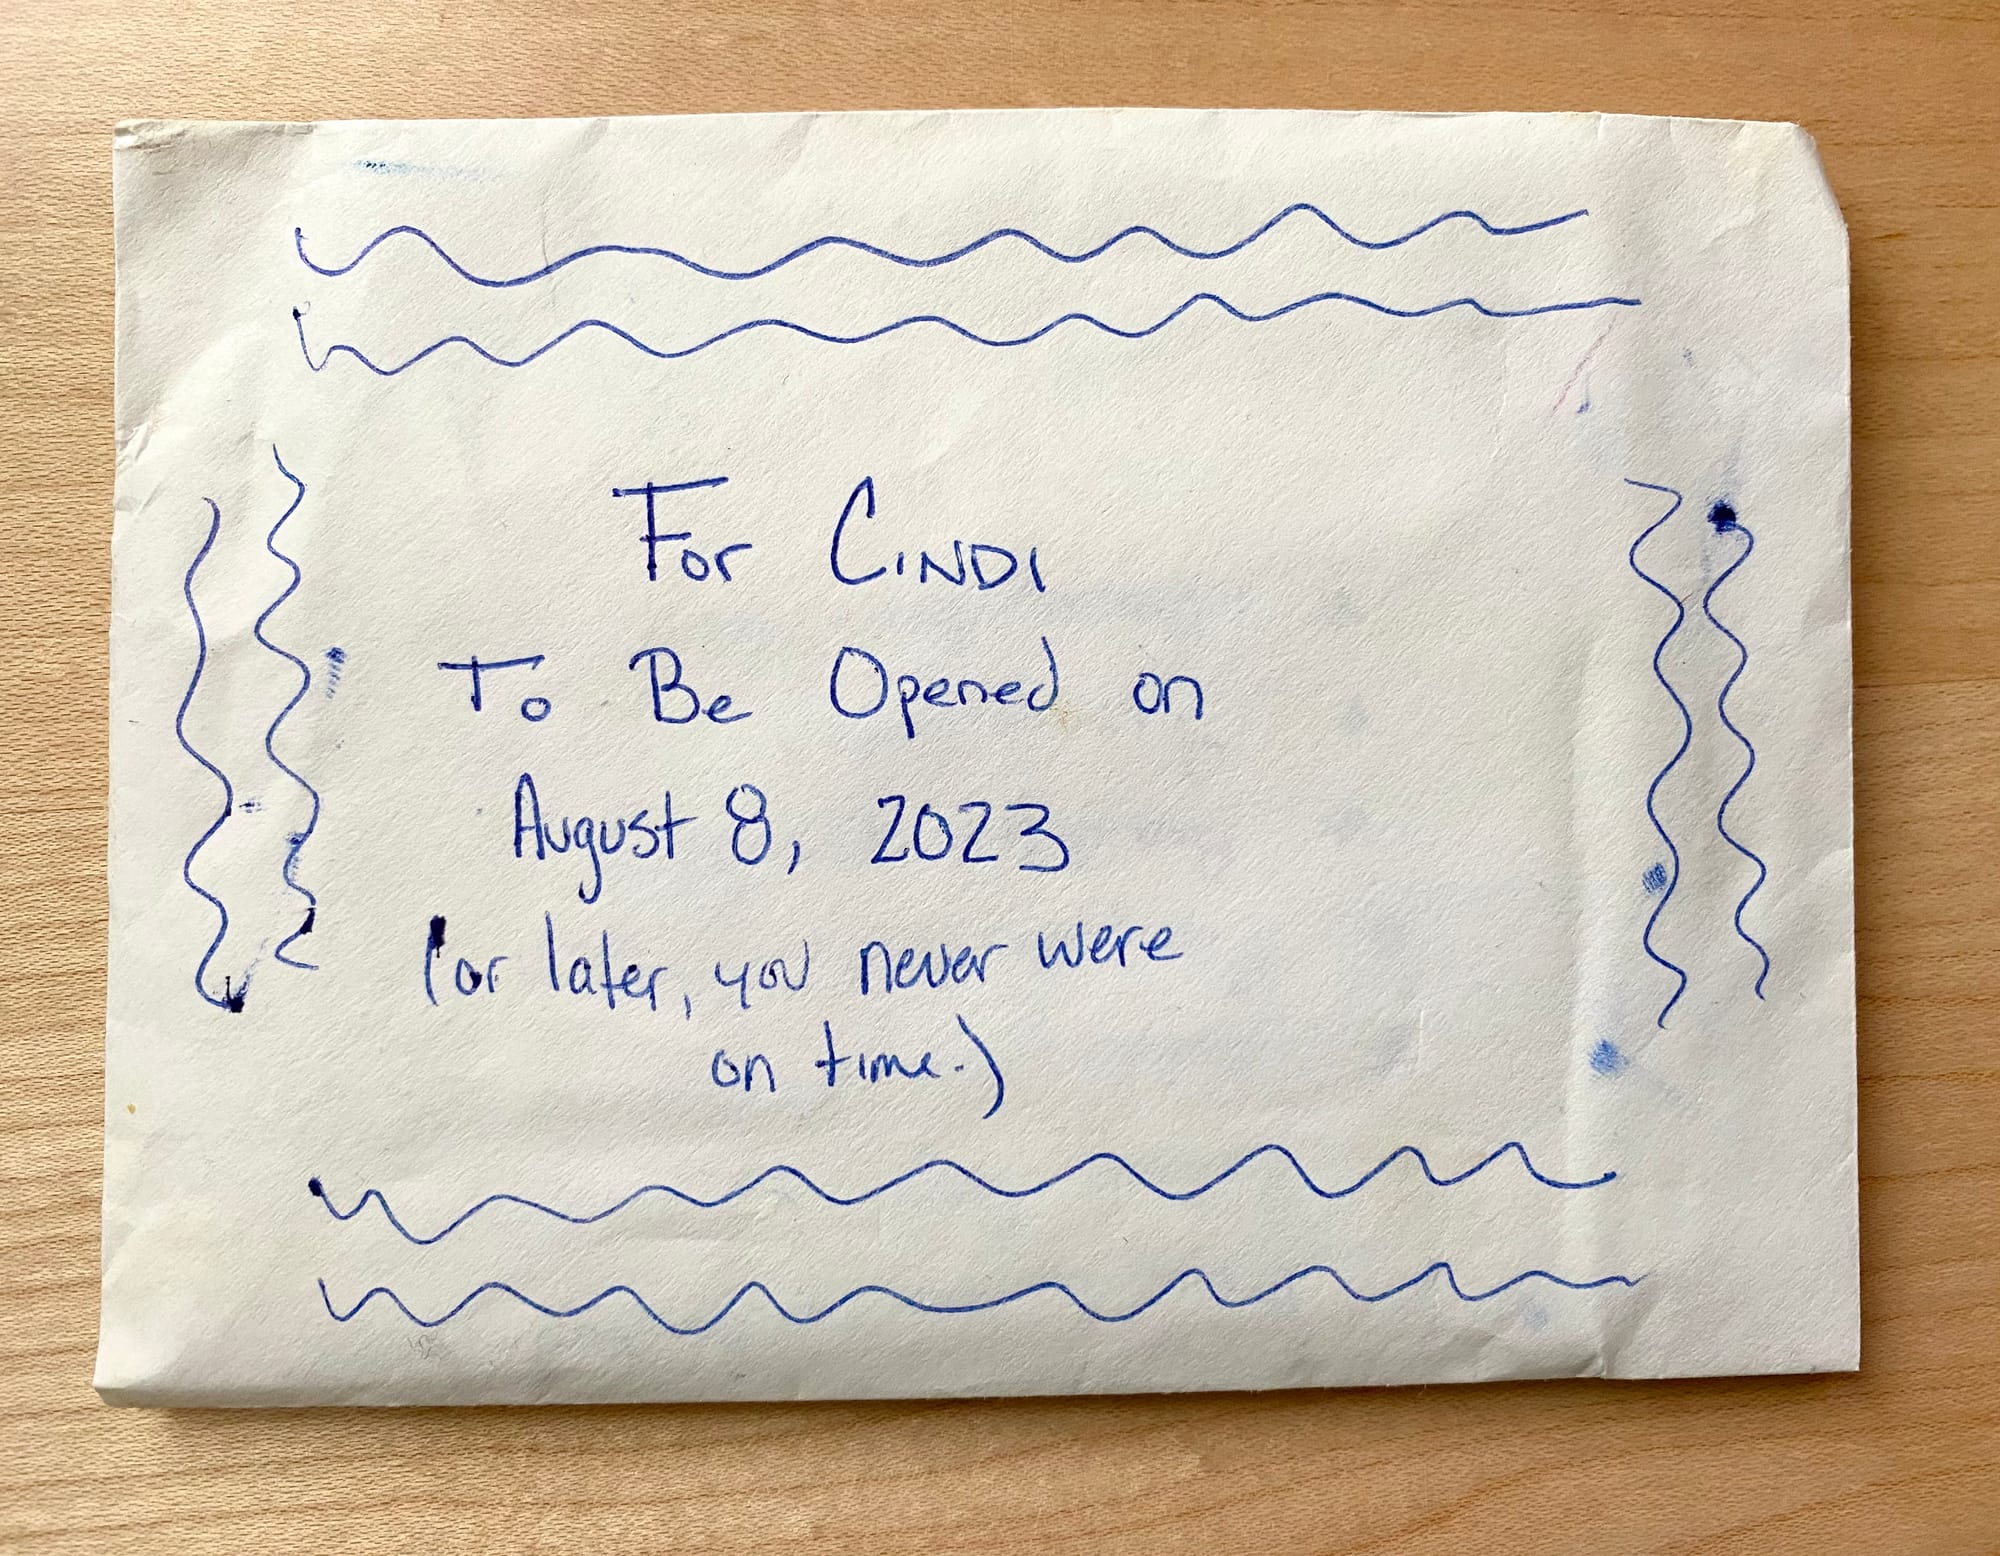 For Cindi
To Be Opened on
August 8, 2023
(or later, you never were
on time.)